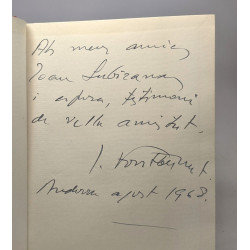 Als meus amics
Joan Subirana
i esposa, testimoni
de vella amistat.
J.
Andorra agost 1968.